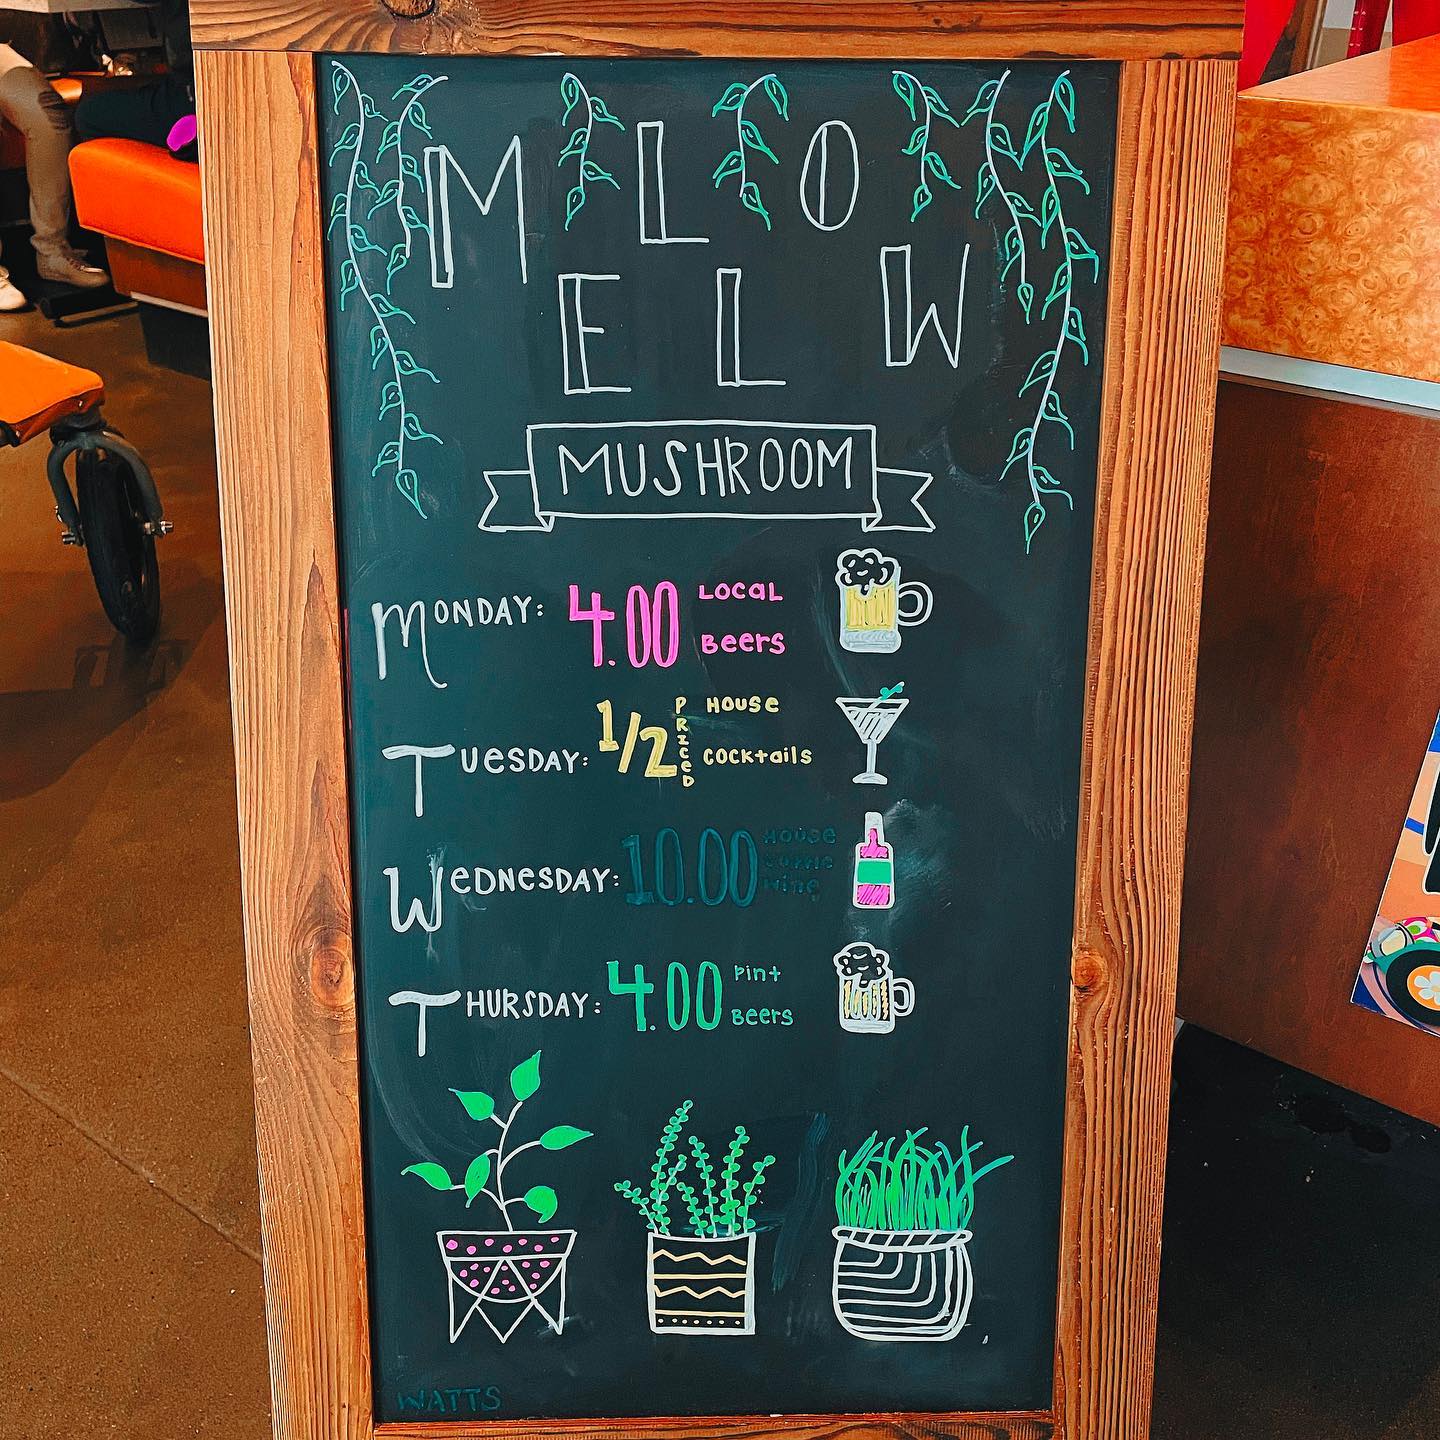 M L O
E L W
MUSHROOM
MONDAY: 4.00 LOCAL BEERS
TUESDAY: 1/2 PRICED HOUSE COCKTAILS
WEDNESDAY: 10.00 HOUSE BOTTLE WINE
THURSDAY: 4.00 PINT BEERS
WATTS